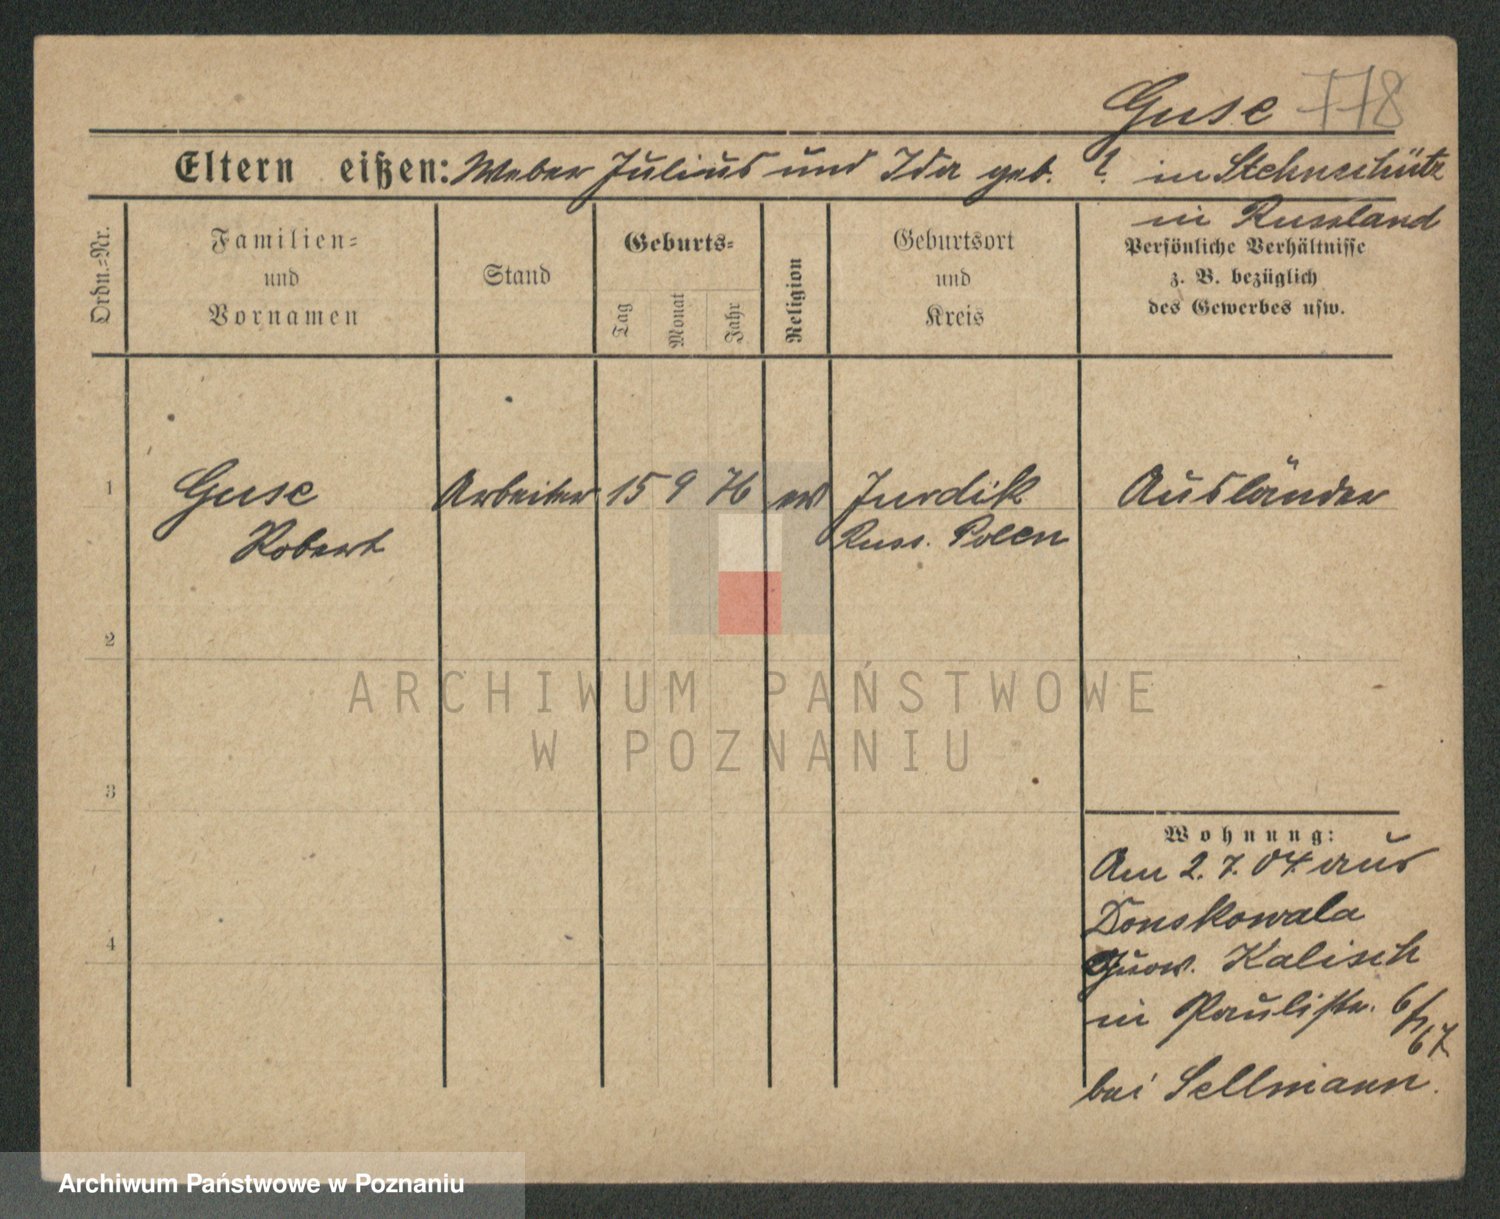 Guse 778
Eltern eißen: Weber Julius und Ida geb. ? in Stchuschütz
in Russland
Ordn.-Nr.
Familien-
und
Vornamen
Stand
Geburts-
Tag
Monat
Jahr
Religion
Geburtsort
und
Kreis
Persönliche Verhältnisse
z. B. bezüglich
des Gewerbes usw.
1 Guse Arbeiter 15 9 76 ev Jurdik Ausländer
Robert Russ. Polen
2
ARCHIWUM PAŃSTWOWE
W POZNANIU
3
Wohnung:
Am 2. 7. 04 aus
Donskowala
Guow. Kalisch
4
in Paulistr. 6/7
67
bei Sellmann.
Archiwum Państwowe w Poznaniu